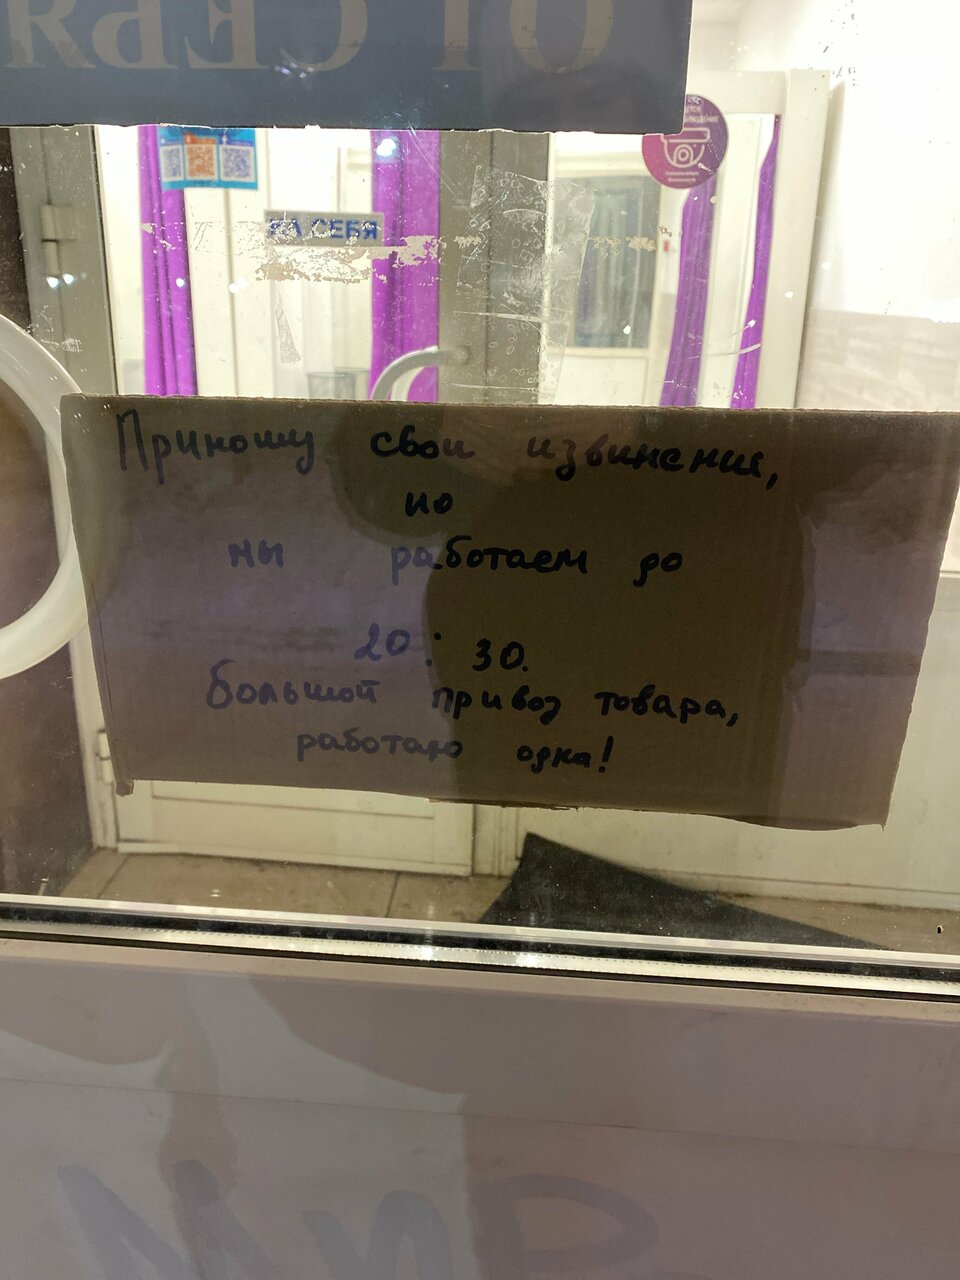 ОТ СЕРЯ
НА СЕБЯ
Приношу свои извинения,
но
мы работаем до
20:30.
большой привоз товара,
работаю одна!